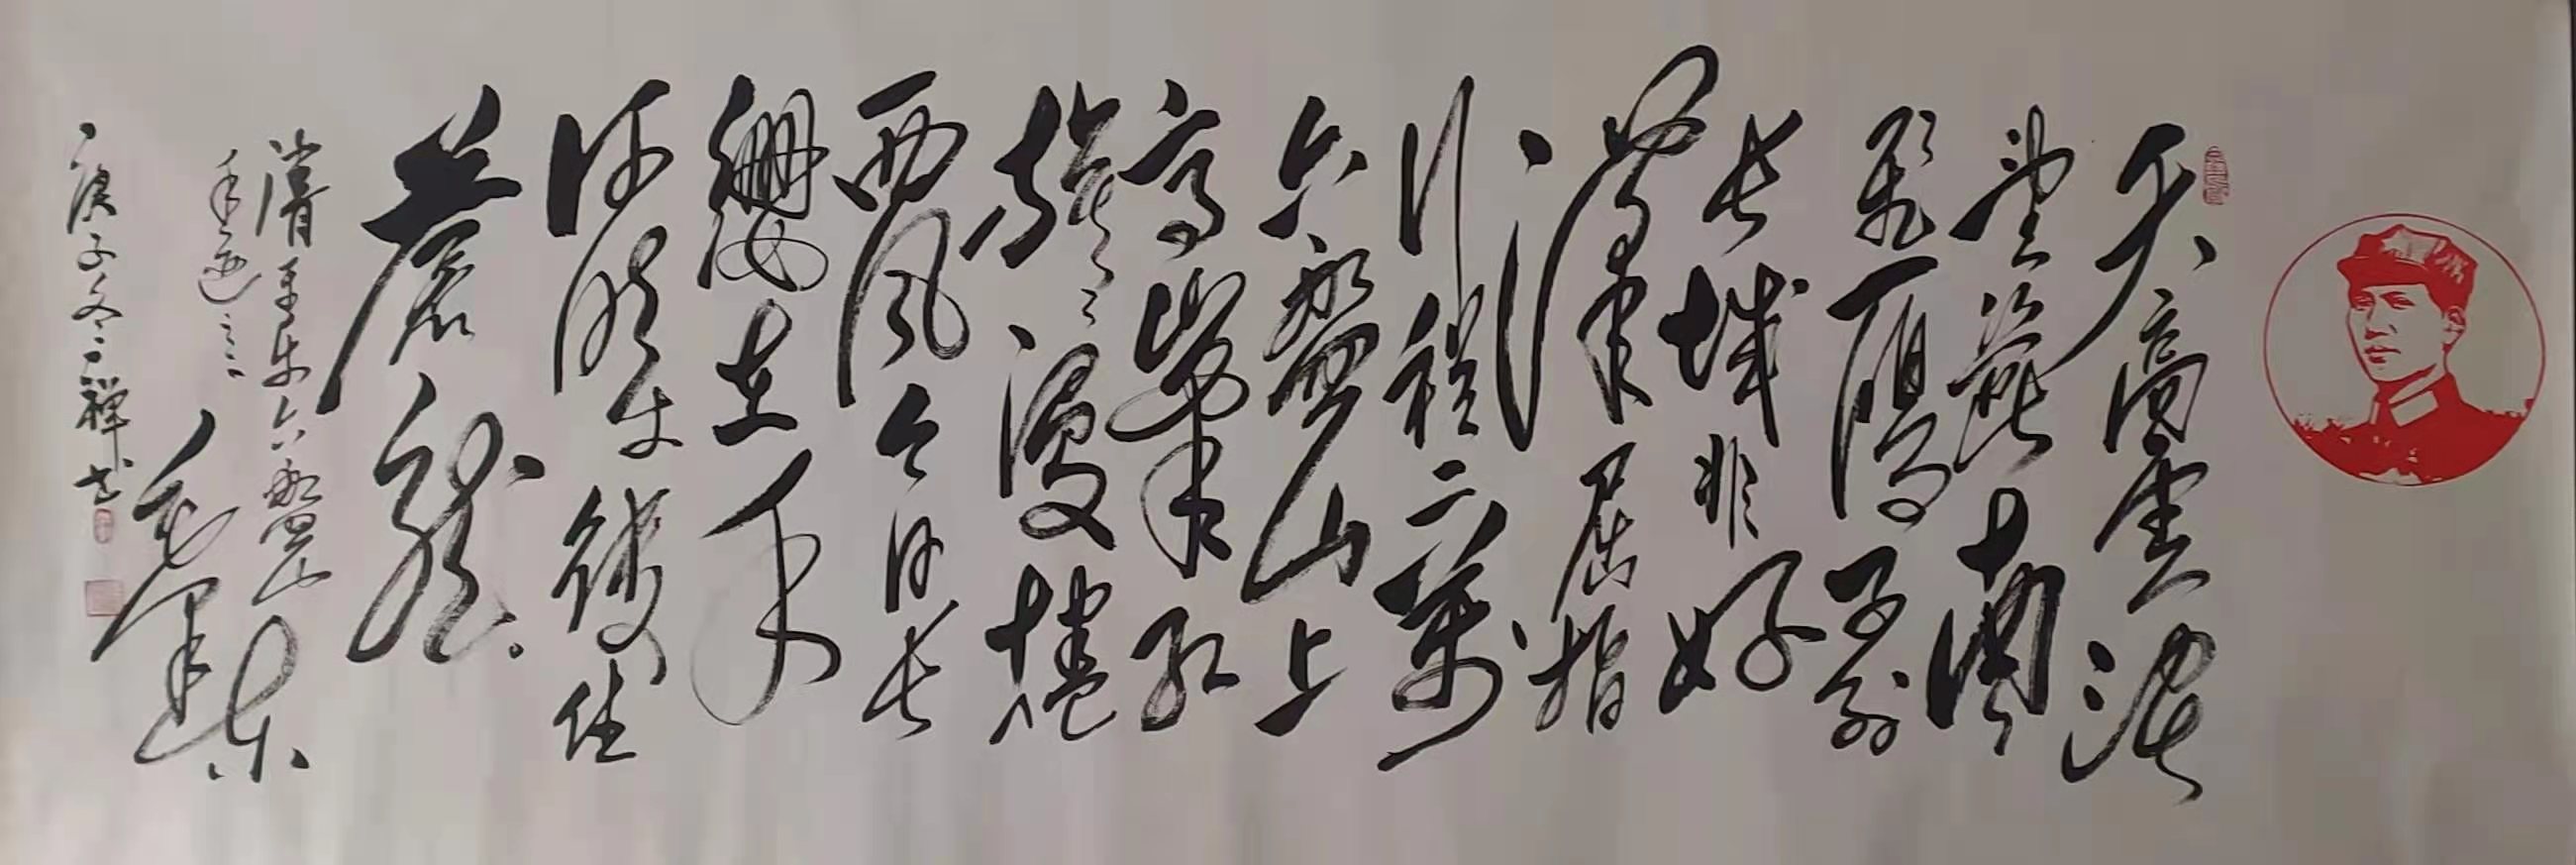 天高雲淡
望斷南
飛雁不到
長城非好
漢屈指
行程二萬
六盤山上
高峰紅
旗漫捲
西風今日長
纓在手
何時縛住
蒼龍。
清平樂六盤山
毛澤東
庚子冬禪書